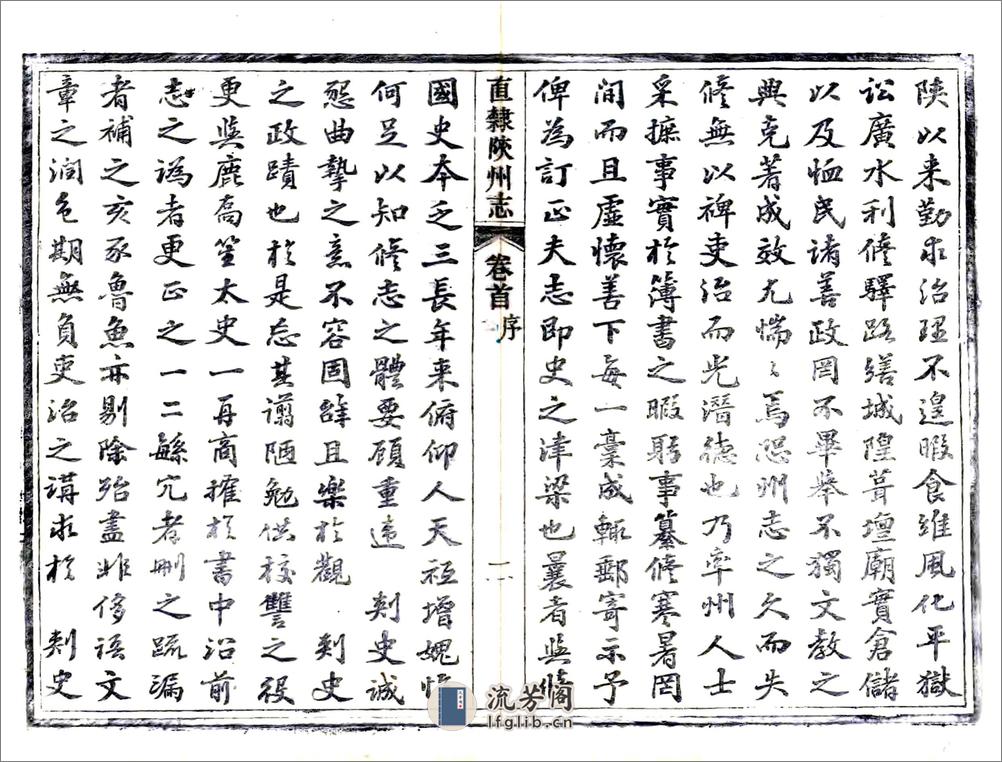 陝以来勤求治理不遑暇食维風化平獄
訟廣水利修驛路繕城隍葺壇廟實倉儲
以及恤民諸善政罔不畢舉不獨文教之
興克著成效尤惴〻焉恐州志之久而失
修無以裨吏治而光潛德也乃率州人士
采摭事實於簿書之暇躬事纂修寒暑罔
间而且虚懷善下每一稾成輒郵寄示予
俾為訂正夫志即史之津梁也曩者與修
直隸陝州志 卷首 序 二
國史本乏三長年来俯仰人天祗增媿恧
何足以知修志之體要顧重違 刺史誠
懇曲摯之意不容固辭且樂於觀 刺史
之政蹟也於是忘其谫陋勉供校讐之役
更與鹿喬笙太史一再商搉於書中沿前
志之譌者更正之一二繇冗者刪之疏漏
者補之亥豕魯魚亦剔除殆盡非侈語文
章之润色期無負吏治之講求於 刺史
流芳阁
lfglib.cn